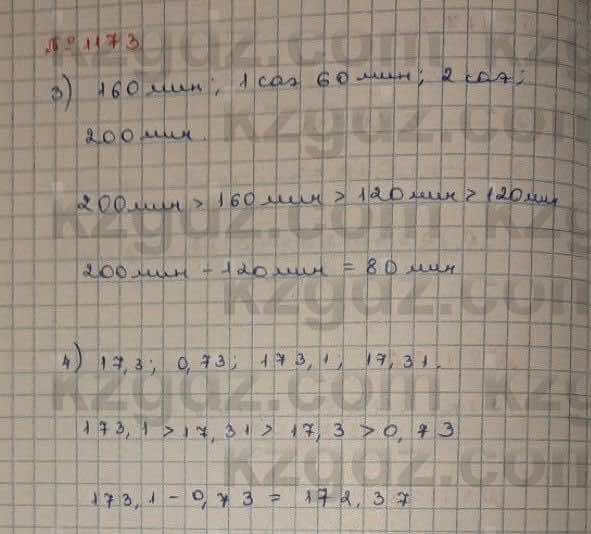 № 1173
3) 160 мин; 1 саг 60 мин; 2 саг;
200 мин.
200 мин > 160 мин > 120 мин > 120 мин
200 мин - 120 мин = 80 мин
4) 17,3; 0,73; 173,1; 17,31.
173,1 > 17,31 > 17,3 > 0,73
173,1 - 0,73 = 172,37
kzgdz.com
kzgdz.com
kzgdz.com
kzgdz.com
kzgdz.com
kzgdz.com